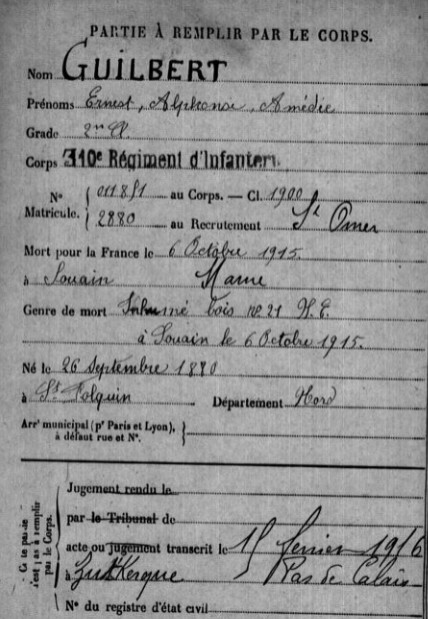 PARTIE À REMPLIR PAR LE CORPS.
Nom GUILBERT
Prénoms Ernest, Alphonse, Amédée
Grade 2me Cl.
Corps 310e Régiment d'Infanterie
N° 011851 au Corps. — Cl. 1900
Matricule. 2880 au Recrutement St Omer
Mort pour la France le 6 Octobre 1915.
à Souain Marne
Genre de mort Inhumé bois n° 21 N.E.
à Souain le 6 Octobre 1915.
Né le 26 Septembre 1880
à St Folquin Département Nord
Arrt municipal (pr Paris et Lyon),
à défaut rue et N°.
Ce te partie
n'est pas à remplir
par le Corps.
Jugement rendu le
par le Tribunal de
acte ou jugement transcrit le 15 février 1916
à Zutkerque Pas de Calais
N° du registre d'état civil